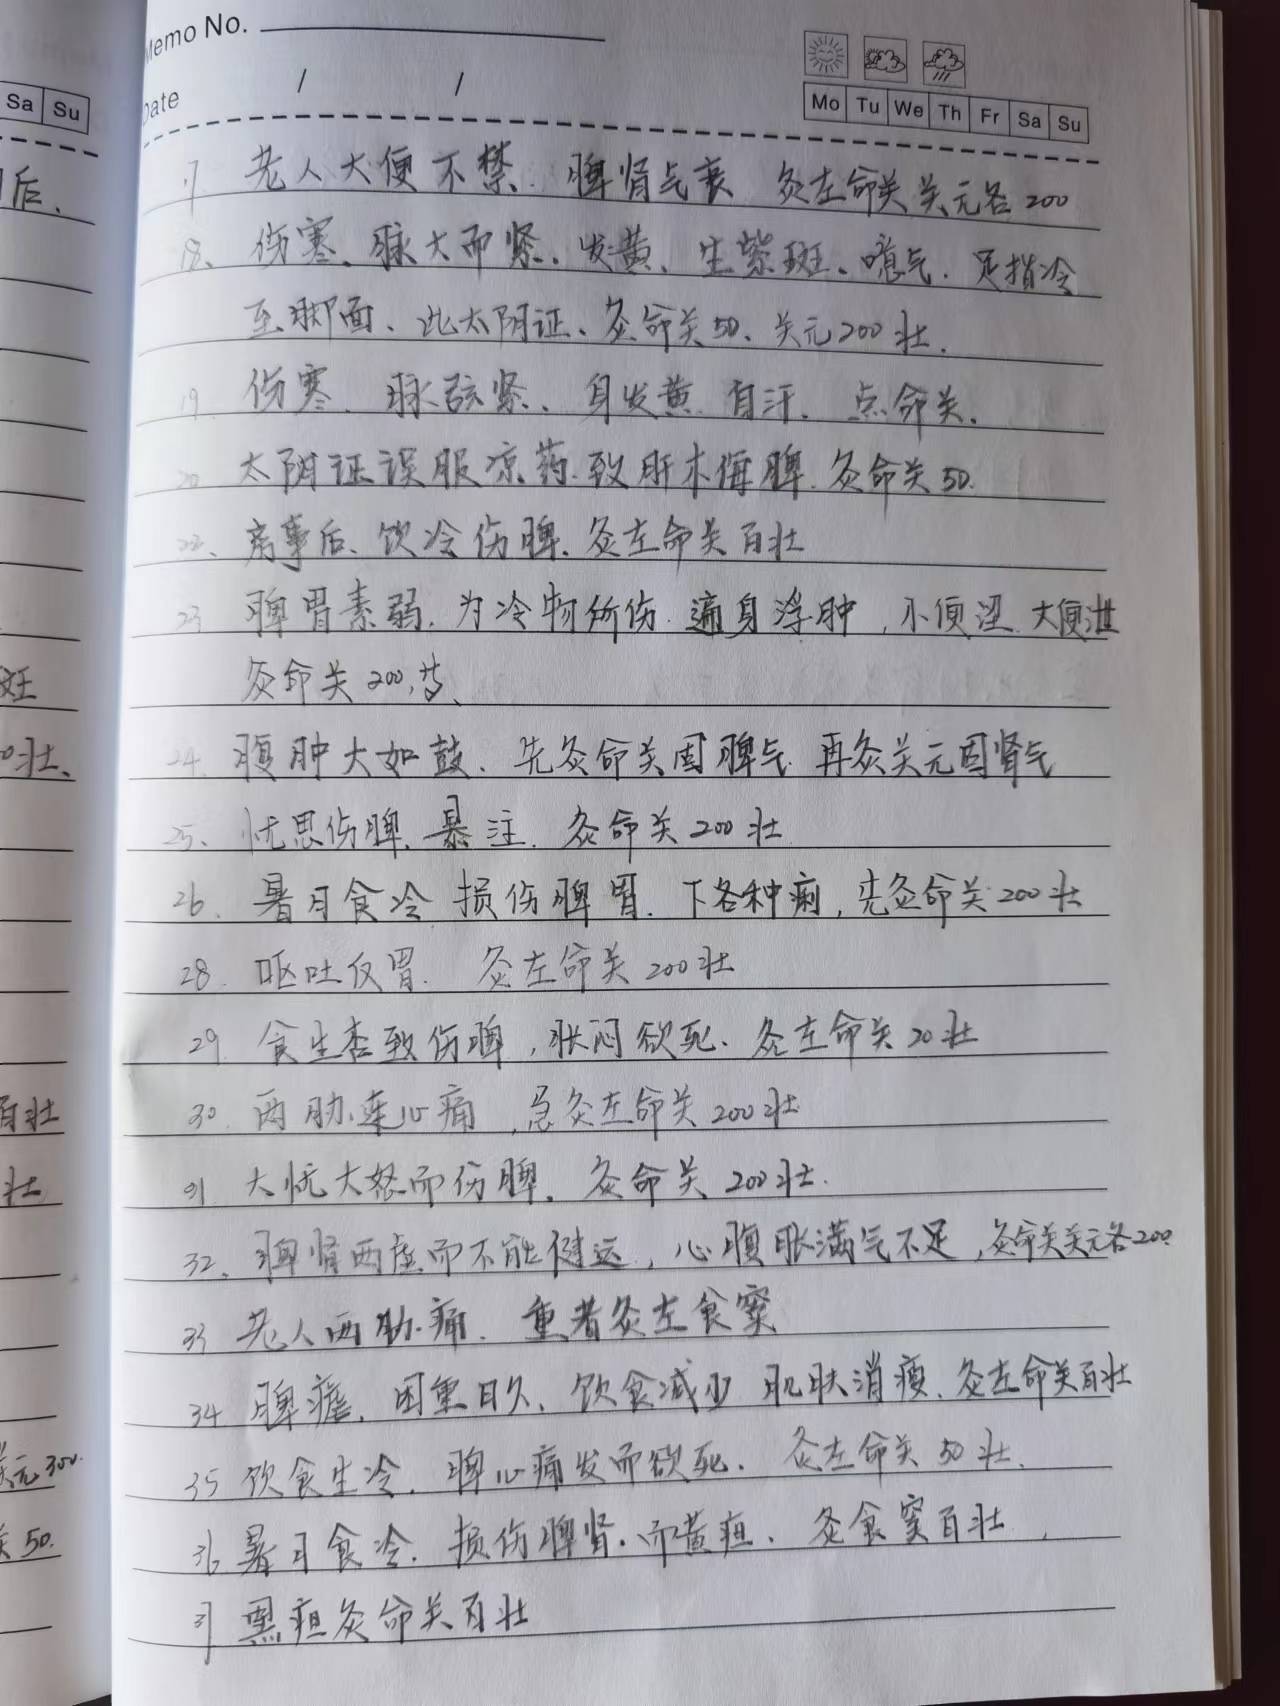 Sa Su
后、
斑
0壮、
百壮
壮
关元300.
关50.
Memo No.
Date / /
Mo Tu We Th Fr Sa Su
17 老人大便不禁. 脾肾气衰 灸左命关关元各200
18、伤寒、脉大而紧、发黄、生紫斑、噫气. 足指冷
至脚面、此太阴证、灸命关50、关元200壮.
19 伤寒. 脉弦紧、身发黄. 自汗. 点命关.
20 太阴证误服凉药. 致肝木侮脾. 灸命关50.
22、房事后、饮冷伤脾. 灸左命关百壮
23 脾胃素弱. 为冷物所伤. 遍身浮肿, 小便涩. 大便泄
灸命关200,
24. 腹肿大如鼓、先灸命关固脾气. 再灸关元固肾气
25、忧思伤脾. 暴注. 灸命关200壮
26. 暑月食冷 损伤脾胃. 下各种痢, 先灸命关200壮
28. 呕吐反胃. 灸左命关200壮
29. 食生杏致伤脾, 胀闷欲死. 灸左命关20壮
30. 两胁连心痛, 急灸左命关200壮
31 大忧大怒而伤脾. 灸命关200壮.
32、脾肾两虚而不能健运, 心腹胀满气不足, 灸命关关元各200.
33 老人两胁痛. 重者灸左食窦
34. 脾疟. 困重日久、饮食减少 肌肤消瘦. 灸左命关百壮
35 饮食生冷. 脾心痛发而欲死. 灸左命关50壮.
36. 暑月食冷. 损伤脾肾. 而黄疸. 灸食窦百壮.
37 黑疸灸命关百壮